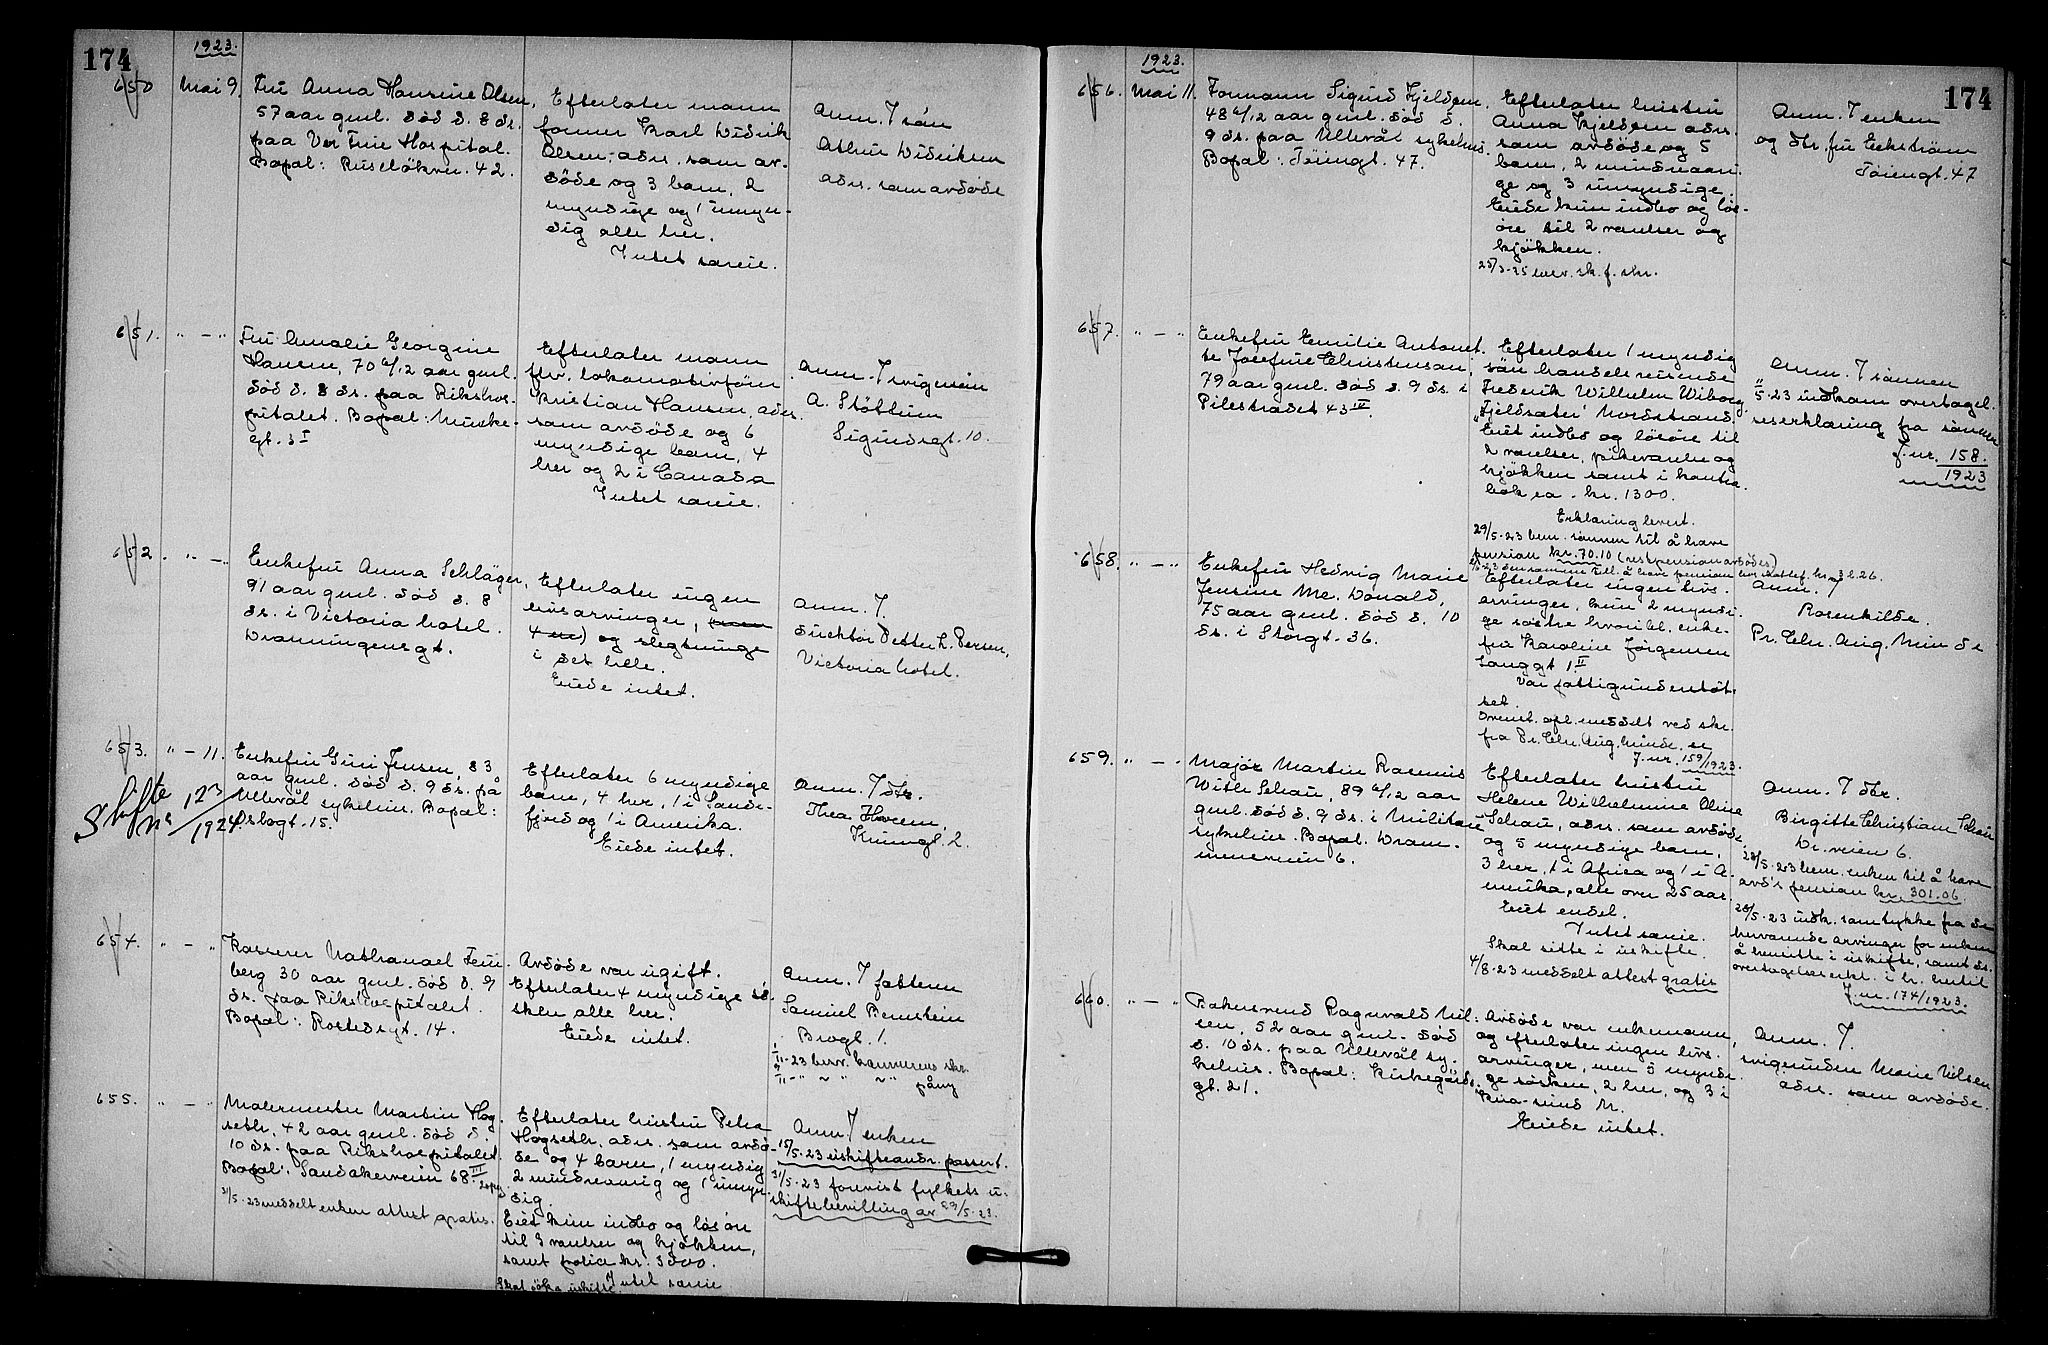 174
1923.
650
Mai 9.
Fru Anna Hansine Olsen,
57 aar gml. död d. 8 ds.
paa Vor Frue Hospital.
Bopæl: Ruselökvn. 42.
Efterlater mann
former Karl Didrik
Olsen, adr. som av-
döde og 3 barn, 2
myndige og 1 umyn-
dig alle her.
Intet særeie.
Anm. I sön
Athur Didriksen
adr. som avdöde
651.
" — "
Fru Amalie Georgine
Hansen, 70 6/12 aar gml.
död d. 8 ds. paa Rikshos-
pitalet. Bopæl: Munke-
gt. 3 I
Efterlater mann
fhv. lokomotivförer
Kristian Hansen, adr.
som avdöde og 6
myndige barn, 4
her og 2 i Canada
Intet særeie.
Anm. I svigersön
A. Stöttum
Sigurdsgt. 10.
652.
" — "
Enkefru Anna Schläger,
91 aar gml. död d. 8
ds. i Victoria hotel.
Dronningensgt.
Efterlater ingen
livsarvinger,
og slegtninge
i det hele.
Eiede intet.
Anm. I.
direktör Petter L. Persen,
Victoria hotel.
653.
" — 11.
Enkefru Guri Jensen, 83
aar gml. död d. 9 ds. på
Ullevål sykehus. Bopæl:
Oslogt. 15.
Skifte
nr 123/1924
Efterlater 6 myndige
barn, 4 her, 1 i Sande-
fjord og 1 i Amerika.
Eiede intet.
Anm. I dtr.
Thea
2.
654.
" — "
Kasserer Nathanael Fein-
berg 30 aar gml. död d. 9
ds. paa Rikshospitalet.
Bopæl: Rostedsgt. 14.
Avdöde var ugift.
Efterlater 4 myndige sö-
sken alle her.
Eiede intet.
Anm. I fætteren
Samuel Bernstein
Brogt. 1.
655.
" — "
Malermester Martin Hog-
seth, 42 aar gml. död d.
10 ds. paa Rikshospitalet.
Bopæl: Sandakerveien 68 III
31/5-23 meddelt enken attest gratis.
Efterlater hustru Petra
Hogseth. adr. som avdö-
de og 4 barn, 1 myndig
2 mindreaarig og 1 umyn-
dig.
Eiet kun indbo og lösöre
til 3 værelser og kjökken,
samt polise kr. 3000.
Intet særeie
Skal söke uskifte.
Anm. I enken
15/5-23 uskifteandr. passert.
31/5-23 forevist fylkets u-
skiftebevilling av 29/5-23.
1923.
174
656.
Mai 11.
Formann Sigurd Kjeldsen.
48 6/12 aar gml. död d.
9 ds. paa Ullevål sykehus.
Bopæl: Töiengt. 47.
Efterlater hustru
Anna Kjeldsen adr.
som avdöde og 5
barn, 2 mindreaari-
ge og 3 umyndige.
Eiede kun indbo og lös-
öre til 2 værelser og
kjökken.
Anm. I enken
og dtr. fru Eckström
Töiengt. 47
657.
" — "
Enkefru Emilie Antonet-
te Josefine Christensen,
79 aar gml. död d. 9 ds. i
Pilestrædet 43 IV.
Efterlater 1 myndig
sön handelsreisende
Frederik Wilhelm Wiborg
"Fjeldsæter" Nordstrand.
Eiet indbo og lösöre til
2 værelser, pikeværelse og
kjökken samt i kontra-
bok ca. kr. 1300.
Erklæring levert.
29/5-23 bem. sönnen til å hæve
pension kr. 70.10 (restpension avdödes)
Anm. I sönnen
5-23 indkom overtagel-
seserklæring fra sönnen
J.nr. 158.
1923
658.
" — "
Enkefru Hedvig Marie
Jensine Mc. Donald,
75 aar gml. död d. 10
ds. i Storgt. 36.
Efterlater ingen livs-
arvinger, kun 2 myndi-
ge söstre hvoribl. enke-
fru Karoline Jörgensen
Langgt 1 II
Var fattigunderstöt-
tet.
Ovenst. opl. meddelt ved skr.
fra Pr. Chr. Aug. Minde, er
J.nr. 159/1923.
Anm. I
Rosenkilde.
Pr. Chr. Aug. Minde
659.
" — "
Major Martin Rasmus
With Schau, 89 6/12 aar
gml. död d. 9 ds. i Militære
sykehus. Bopæl. Dram-
mensveien 6.
Efterlater hustru
Helene Wilhelmine Oline
Schau, adr. som avdöde
og 5 myndige barn,
3 her, 1 i Africa og 1 i A-
merika, alle over 25 aar.
Eiet endel.
Intet særeie.
Skal sitte i uskifte.
4/8-23 meddelt attest gratis
Anm. I dtr.
Birgitte Christiane Schau
Dr. veien 6.
28/5-23 bem. enken til å hæve
avd's pension kr. 301.06.
28/5-23 indk. samtykke fra de
herværende arvinger for enken
å hensitte i uskifte, samt ds.
overtagelseserkl.
J.nr. 174/1923.
660.
" — "
Bakersvend Ragnvald Nil-
sen, 52 aar gml. död
d. 10 ds. paa Ullevål sy-
kehus. Bopæl: Kirkegårds-
gt. 21.
Avdöde var enkemann,
og efterlater ingen livs-
arvinger, men 5 myndi-
ge sösken, 2 her, og 3 i
Kr.a-sund N.
Eiede intet.
Anm. I.
svigerinden Marie Nilsen
adr. som avdöde.